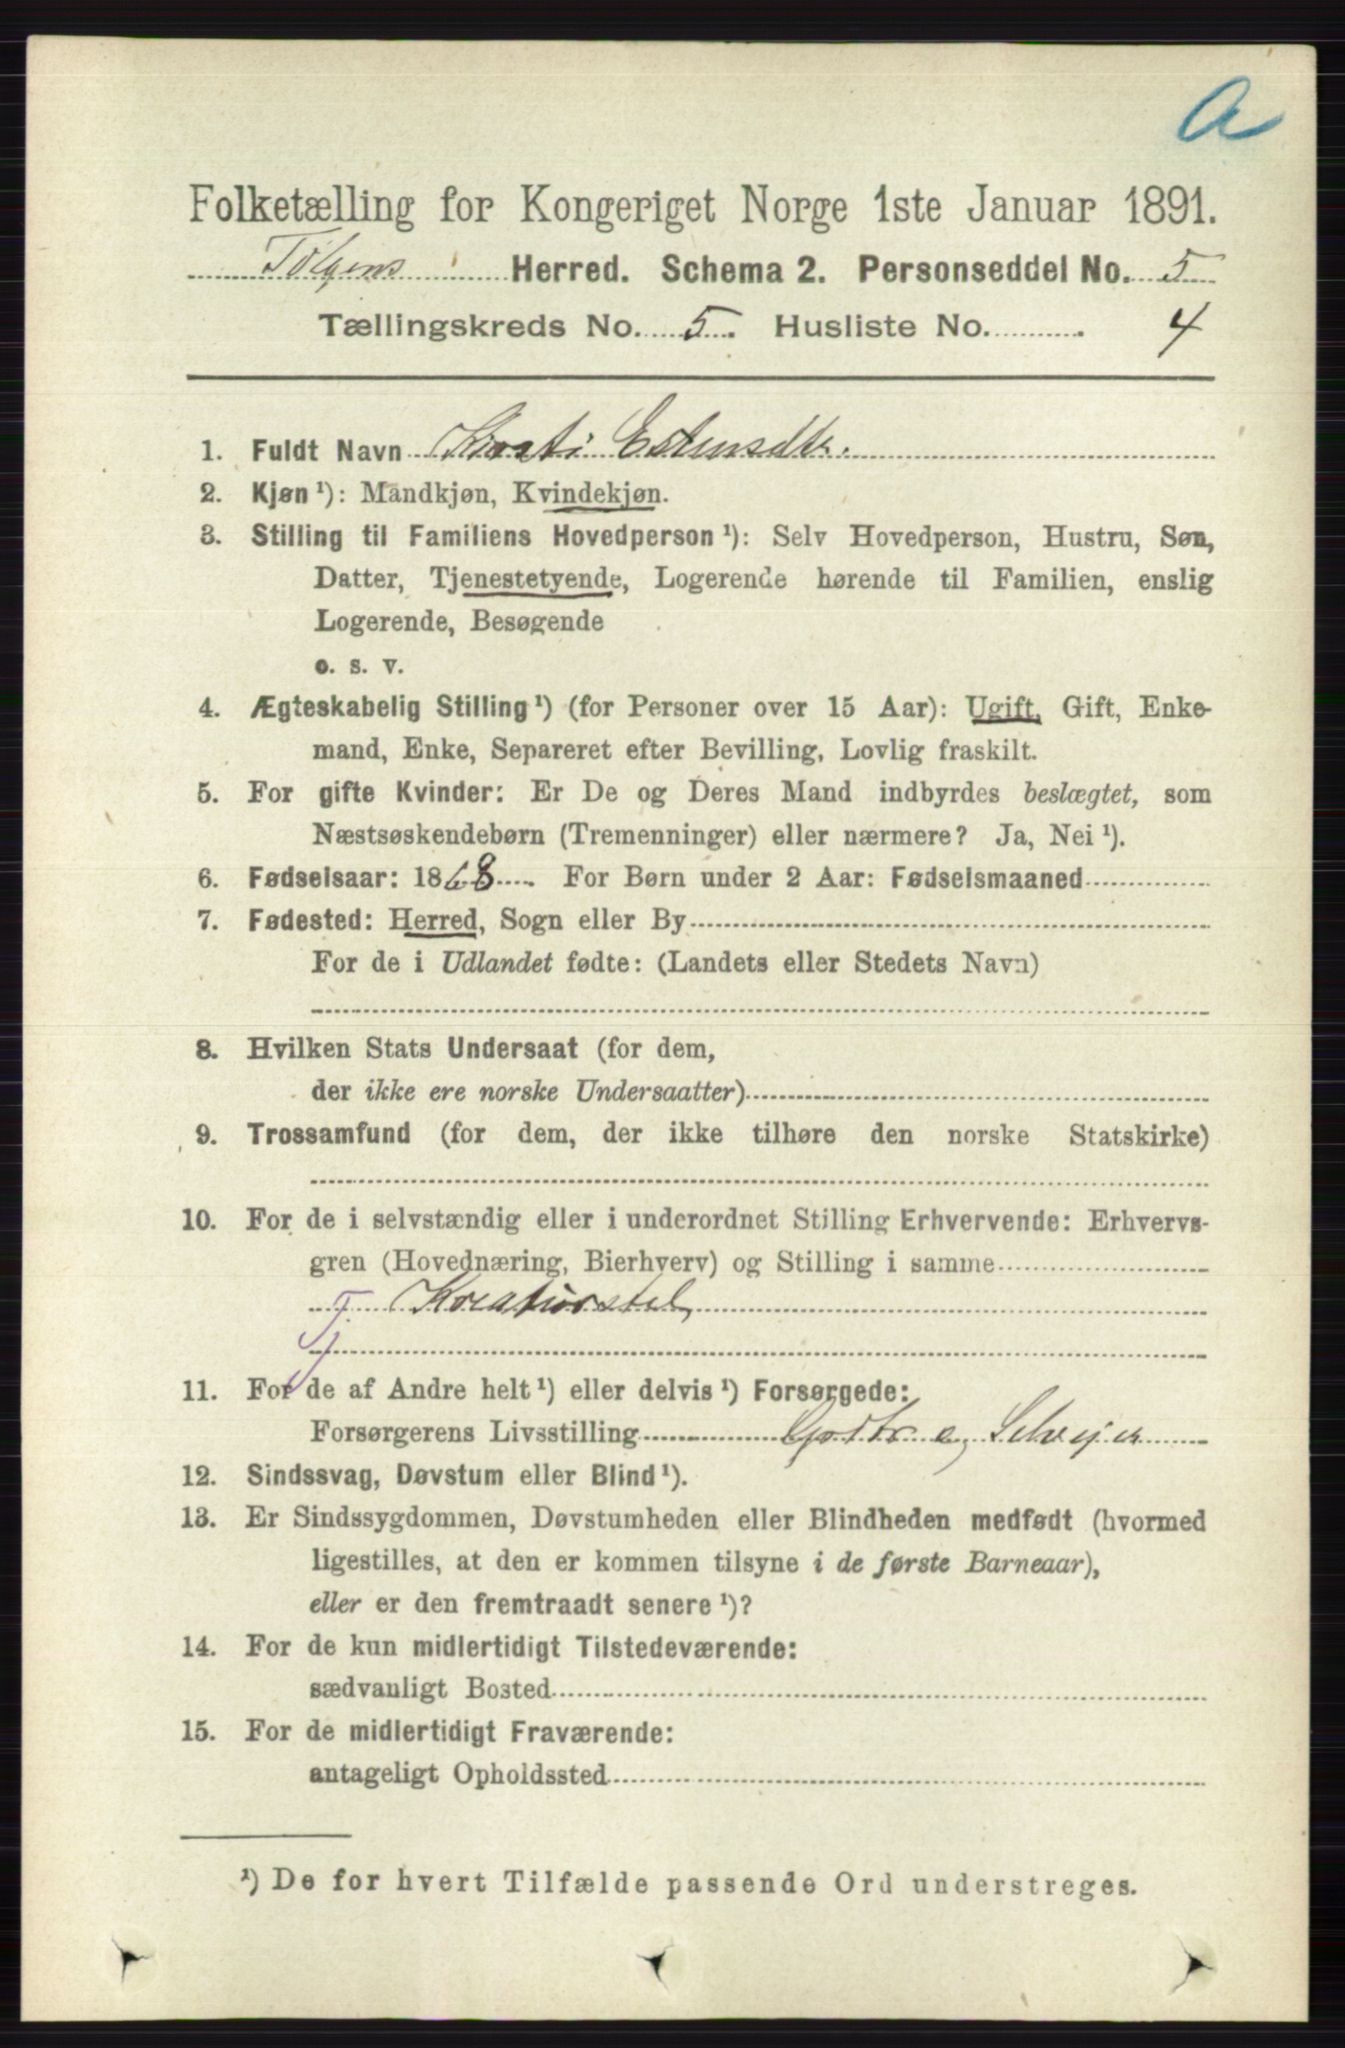 a
Folketælling for Kongeriget Norge 1ste Januar 1891.
Tolgens Herred. Schema 2. Personseddel No. 5
Tællingskreds No. 5. Husliste No. 4
1. Fuldt Navn Kirsti Estensdtr.
2. Kjøn ¹): Mandkjøn, Kvindekjøn.
3. Stilling til Familiens Hovedperson ¹): Selv Hovedperson, Hustru, Søn,
Datter, Tjenestetyende, Logerende hørende til Familien, enslig
Logerende, Besøgende
o. s. v.
4. Ægteskabelig Stilling ¹) (for Personer over 15 Aar): Ugift, Gift, Enke-
mand, Enke, Separeret efter Bevilling, Lovlig fraskilt.
5. For gifte Kvinder: Er De og Deres Mand indbyrdes beslægtet, som
Næstsøskendebørn (Tremenninger) eller nærmere? Ja, Nei ¹).
6. Fødselsaar: 1868. For Børn under 2 Aar: Fødselsmaaned
7. Fødested: Herred, Sogn eller By
For de i Udlandet fødte: (Landets eller Stedets Navn)
8. Hvilken Stats Undersaat (for dem,
der ikke ere norske Undersaatter)
9. Trossamfund (for dem, der ikke tilhøre den norske Statskirke)
10. For de i selvstændig eller i underordnet Stilling Erhvervende: Erhvervs-
gren (Hovednæring, Bierhverv) og Stilling i samme
Tj. Kreaturstel
11. For de af Andre helt ¹) eller delvis ¹) Forsørgede:
Forsørgerens Livsstilling Gdbr. og Selveier
12. Sindssvag, Døvstum eller Blind ¹).
13. Er Sindssygdommen, Døvstumheden eller Blindheden medfødt (hvormed
ligestilles, at den er kommen tilsyne i de første Barneaar),
eller er den fremtraadt senere ¹)?
14. For de kun midlertidigt Tilstedeværende:
sædvanligt Bosted
15. For de midlertidigt Fraværende:
antageligt Opholdssted
¹) De for hvert Tilfælde passende Ord understreges.